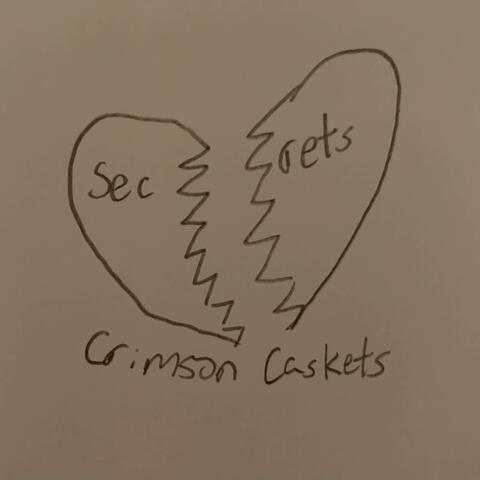 Sec rets
Crimson Caskets